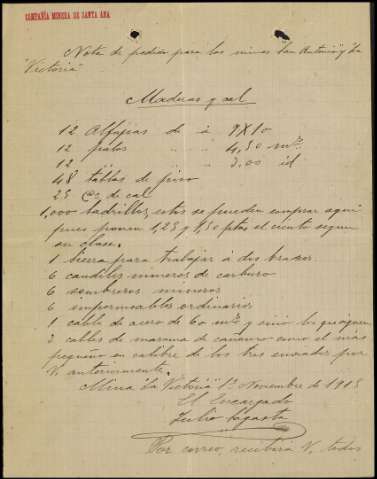 COMPAÑIA MINERA DE SANTA ANA
Nota de pedido para las minas "San Antonio" y "La
Victoria"
Maderas y cal
12 Alfajias de á 9X10
12 palos " " 4,50 mts
12 " " " 3.00 id
48 tablas de piso
25 @s de cal
1,000 ladrillos, estos se pueden comprar aqui
pues ponen 1,25 y 1,50 ptas el ciento segun
su clase.
1 para trabajar á dos brazos
6 candiles mineros de carburo
6 sombreros mineros
6 impermeables ordinarios
1 cable de acero de 60 mts y
2 cables de maroma de cañamo como el mas
pequeño en calibre de los tres enviados por
V. anteriormente.
Mina "La Victoria" 1º Noviembre de
El Encargado
Julio
Por correo, recibirá V. todos